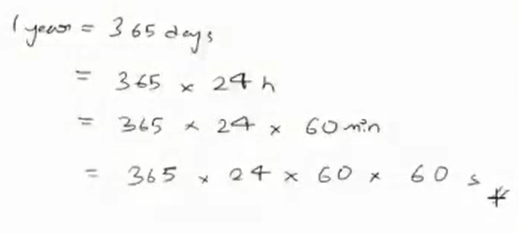 1 year = 365 days
= 365 × 24 h
= 365 × 24 × 60 min
= 365 × 24 × 60 × 60 s